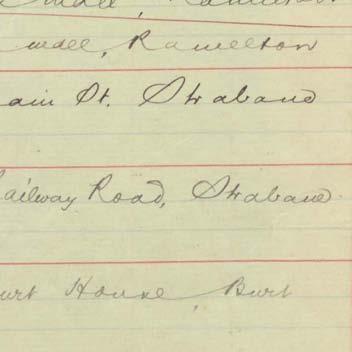 Ramelton
ain St. Strabane
ailway Road, Strabane
urt House, Burt